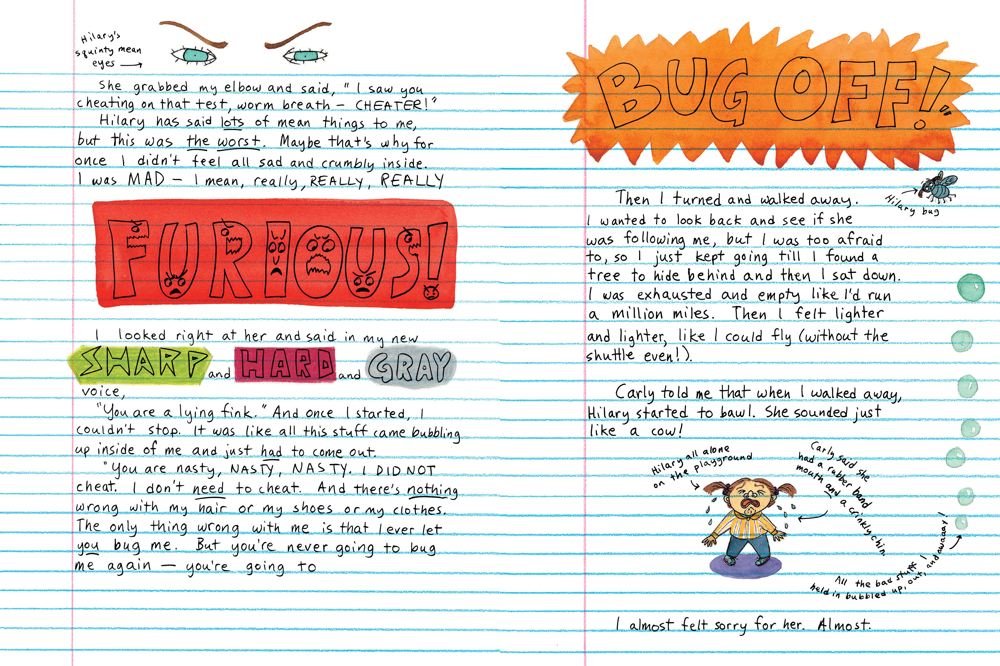 Hilary's
squinty mean
eyes
She grabbed my elbow and said, "I saw you
cheating on that test, worm breath – CHEATER!"
Hilary has said lots of mean things to me,
but this was the worst. Maybe that's why for
once I didn't feel all sad and crumbly inside.
I was MAD – I mean, really, REALLY, REALLY
FURIOUS!
I looked right at her and said in my new
SHARP and HARD and GRAY
voice,
"You are a lying fink." And once I started, I
couldn't stop. It was like all this stuff came bubbling
up inside of me and just had to come out.
"You are nasty, NASTY, NASTY. I DID NOT
cheat. I don't need to cheat. And there's nothing
wrong with my hair or my shoes or my clothes.
The only thing wrong with me is that I ever let
you bug me. But you're never going to bug
me again – you're going to
BUG OFF!"
Hilary bug
Then I turned and walked away.
I wanted to look back and see if she
was following me, but I was too afraid
to, so I just kept going till I found a
tree to hide behind and then I sat down.
I was exhausted and empty like I'd run
a million miles. Then I felt lighter
and lighter, like I could fly (without the
shuttle even!).
Carly told me that when I walked away,
Hilary started to bawl. She sounded just
like a cow!
Hilary all alone
on the playground
Carly said she
had a rubber band
mouth and a crinkly chin.
All the bad stuff I
held in bubbled up, out, and awaaay!
I almost felt sorry for her. Almost.